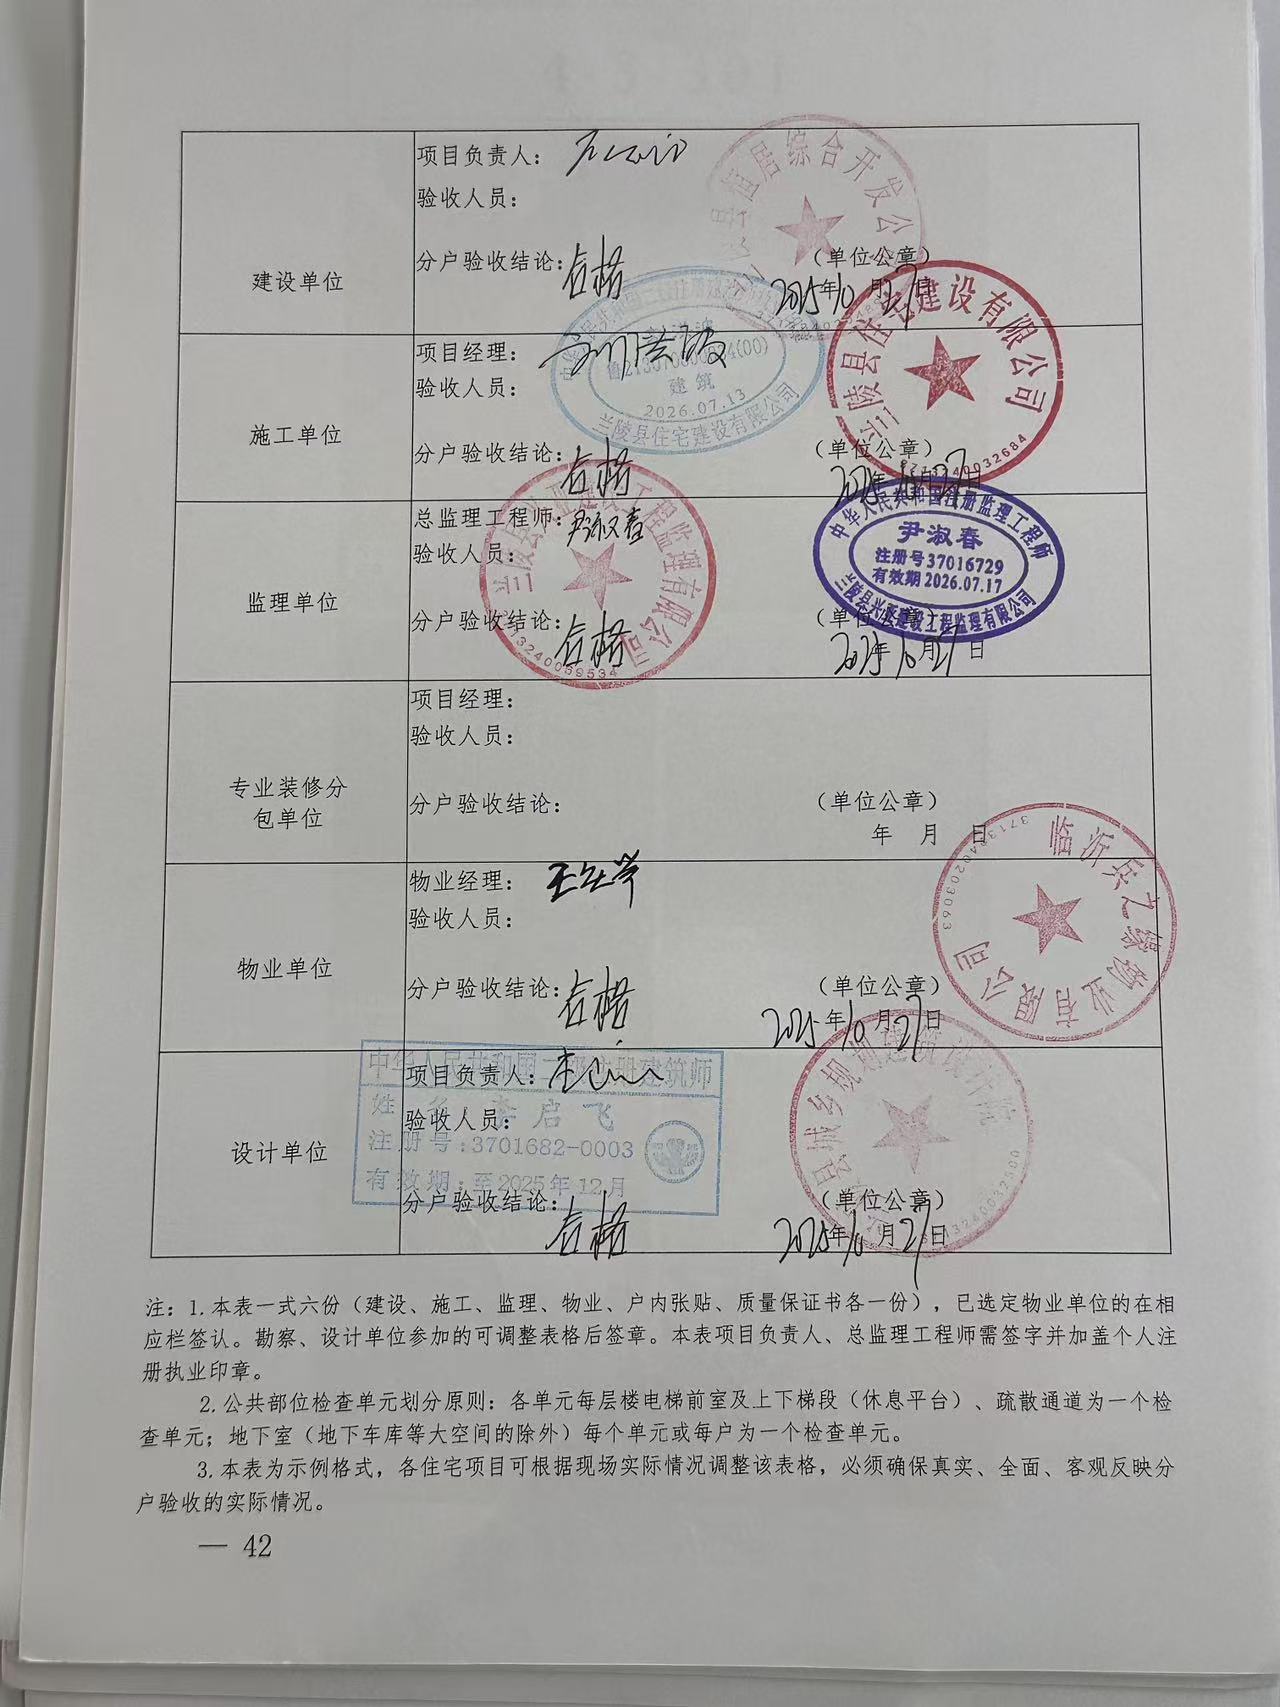 建设单位
项目负责人：
验收人员：
分户验收结论：合格
（单位公章）
2025年10月27日
县恒居综合开发公
施工单位
项目经理：
验收人员：
分户验收结论：合格
（单位公章）
2025年10月27日
建筑
2026.07.13
兰陵县住宅建设有限公司
兰陵县住宅建设有限公司
3713240032684
监理单位
总监理工程师：尹淑春
验收人员：
分户验收结论：合格
（单位公章）
2025年10月27日
工程监理有限公司
3713240059534
中华人民共和国注册监理工程师
尹淑春
注册号37016729
有效期2026.07.17
兰陵县兴亚建设工程监理有限公司
专业装修分
包单位
项目经理：
验收人员：
分户验收结论：
（单位公章）
年 月 日
物业单位
物业经理：
验收人员：
分户验收结论：合格
（单位公章）
2025年10月27日
物业有限公司
3713240203063
设计单位
项目负责人：
验收人员：
分户验收结论：合格
（单位公章）
2025年10月27日
中华人民共和国二级注册建筑师
姓 名：李启飞
注册号：3701682-0003
有效期：至2025年12月
县城乡规划建筑设计院
3713240032500
注：1.本表一式六份（建设、施工、监理、物业、户内张贴、质量保证书各一份），已选定物业单位的在相
应栏签认。勘察、设计单位参加的可调整表格后签章。本表项目负责人、总监理工程师需签字并加盖个人注
册执业印章。
2.公共部位检查单元划分原则：各单元每层楼电梯前室及上下梯段（休息平台）、疏散通道为一个检
查单元；地下室（地下车库等大空间的除外）每个单元或每户为一个检查单元。
3.本表为示例格式，各住宅项目可根据现场实际情况调整该表格，必须确保真实、全面、客观反映分
户验收的实际情况。
— 42